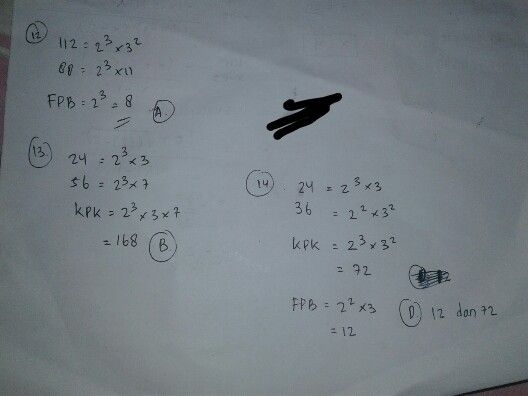 12
112 = 2³ × 3²
88 = 2³ × 11
FPB = 2³ = 8 A.
13.
24 = 2³ × 3
56 = 2³ × 7
KPK = 2³ × 3 × 7
= 168 B
14
24 = 2³ × 3
36 = 2² × 3²
KPK = 2³ × 3²
= 72
FPB = 2² × 3 D. 12 dan 72
= 12